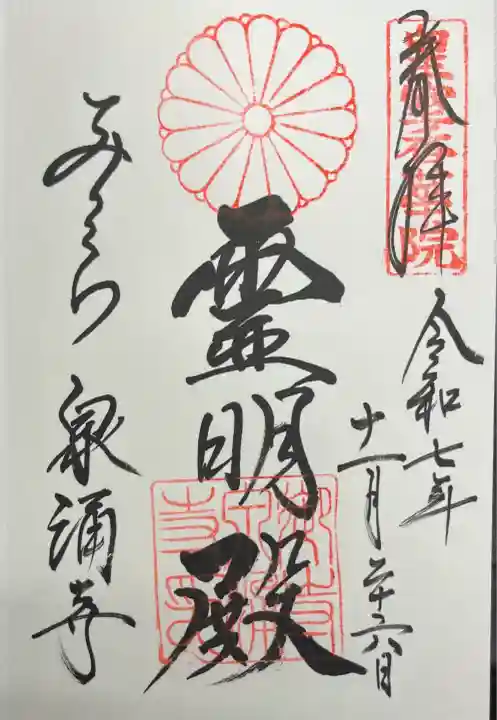 奉拝
令和七年
十一月二十六日
霊明殿
みてら 泉涌寺